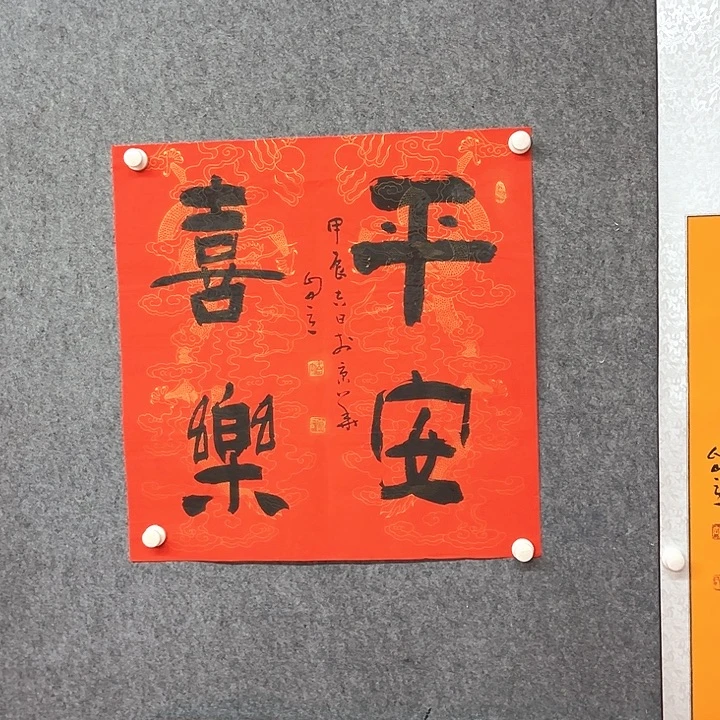 平安
甲辰吉日於京
喜樂